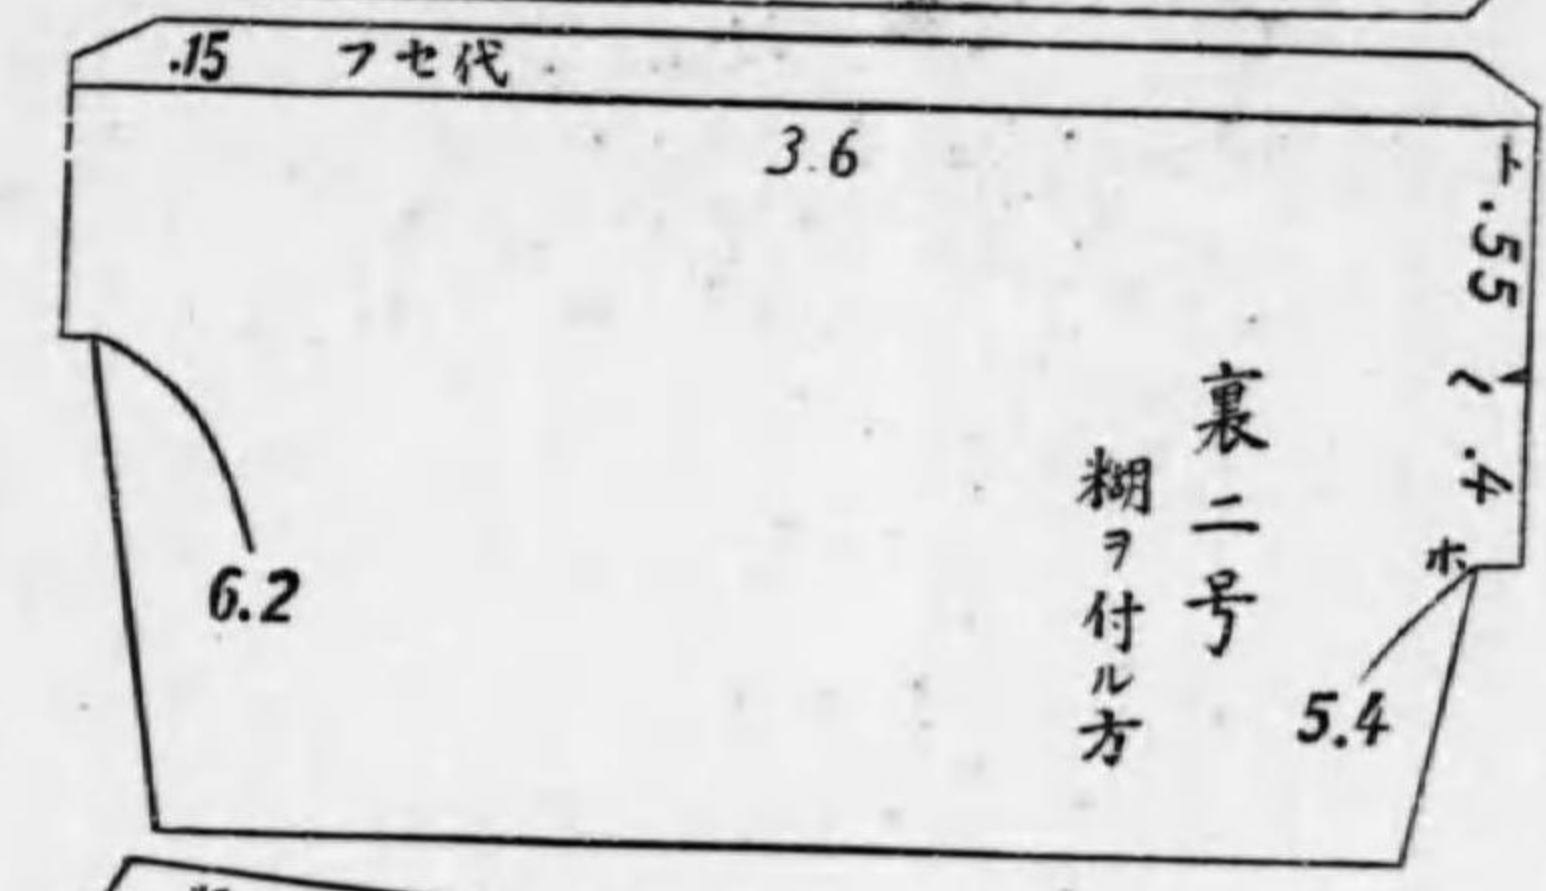 .15 フセ代
3.6
.55
.4
ホ
裏二号
糊ヲ付ル方
6.2
5.4